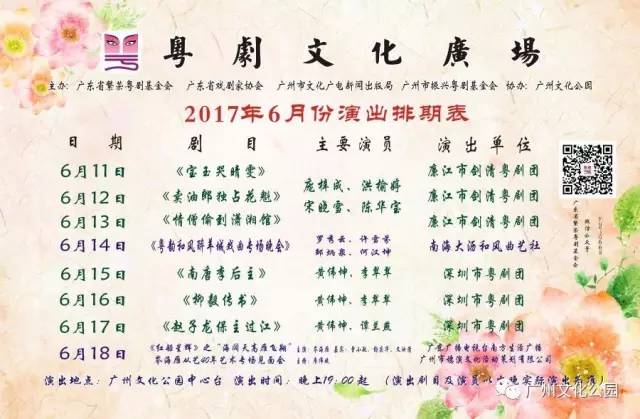 粤劇文化廣場
主办：广东省繁荣粤剧基金会　广东省戏剧家协会　广州市文化广电新闻出版局　广州市振兴粤剧基金会　协办：广州文化公园
2017年6月份演出排期表
日期　剧目　主要演员　演出单位
6月11日　《宝玉哭晴雯》　廉江市创清粤剧团
6月12日　《卖油郎独占花魁》　庞梓成、洪榆　廉江市创清粤剧团
6月13日　《情僧偷到潇湘馆》　宋晓雪、陈华宝　廉江市创清粤剧团
6月14日　《粤韵和风醉羊城戏曲专场晚会》　罗秀云、许雪芬　邹炳泉、何汉坤　南海大沥和风曲艺社
6月15日　《南唐李后主》　黄伟坤、李翠翠　深圳市粤剧团
6月16日　《柳毅传书》　黄伟坤、李翠翠　深圳市粤剧团
6月17日　《赵子龙保主过江》　黄伟坤、谭兰燕　深圳市粤剧团
6月18日　《红船星辉》之“海阔天高雁飞翔”　主演：黎海雁　广东广播电视台南方生活广播
黎海雁从艺40年艺术专场见面会　主持：　广州市德演文化活动策划有限公司
演出地点：广州文化公园中心台　演出时间：晚上19:00起　（演出剧目及演员以当晚实际演出为准）
广东省繁荣粤剧基金会
微信公众号
广州文化公园